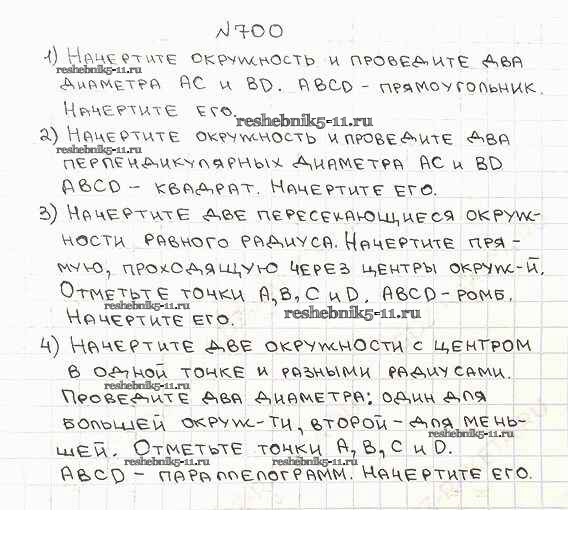 N700
1) Начертите окружность и проведите два
reshebnik5-11.ru
диаметра AC и BD. ABCD - прямоугольник.
Начертите его.
reshebnik5-11.ru
2) Начертите окружность и проведите два
reshebnik5-11.ru
перпендикулярных диаметра AC и BD
ABCD - квадрат. Начертите его.
3) Начертите две пересекающиеся окруж-
ности равного радиуса. Начертите пря-
мую, проходящую через центры окруж-й.
Отметьте точки A, B, C и D. ABCD - ромб.
reshebnik5-11.ru
reshebnik5-11.ru
Начертите его.
4) Начертите две окружности с центром
в одной точке и разными радиусами.
reshebnik5-11.ru
Проведите два диаметра: один для
большей окруж-ти, второй - для мень-
reshebnik5-11.ru
шей. Отметьте точки A, B, C и D.
reshebnik5-11.ru
reshebnik5-11.ru
ABCD - параллелограмм. Начертите его.